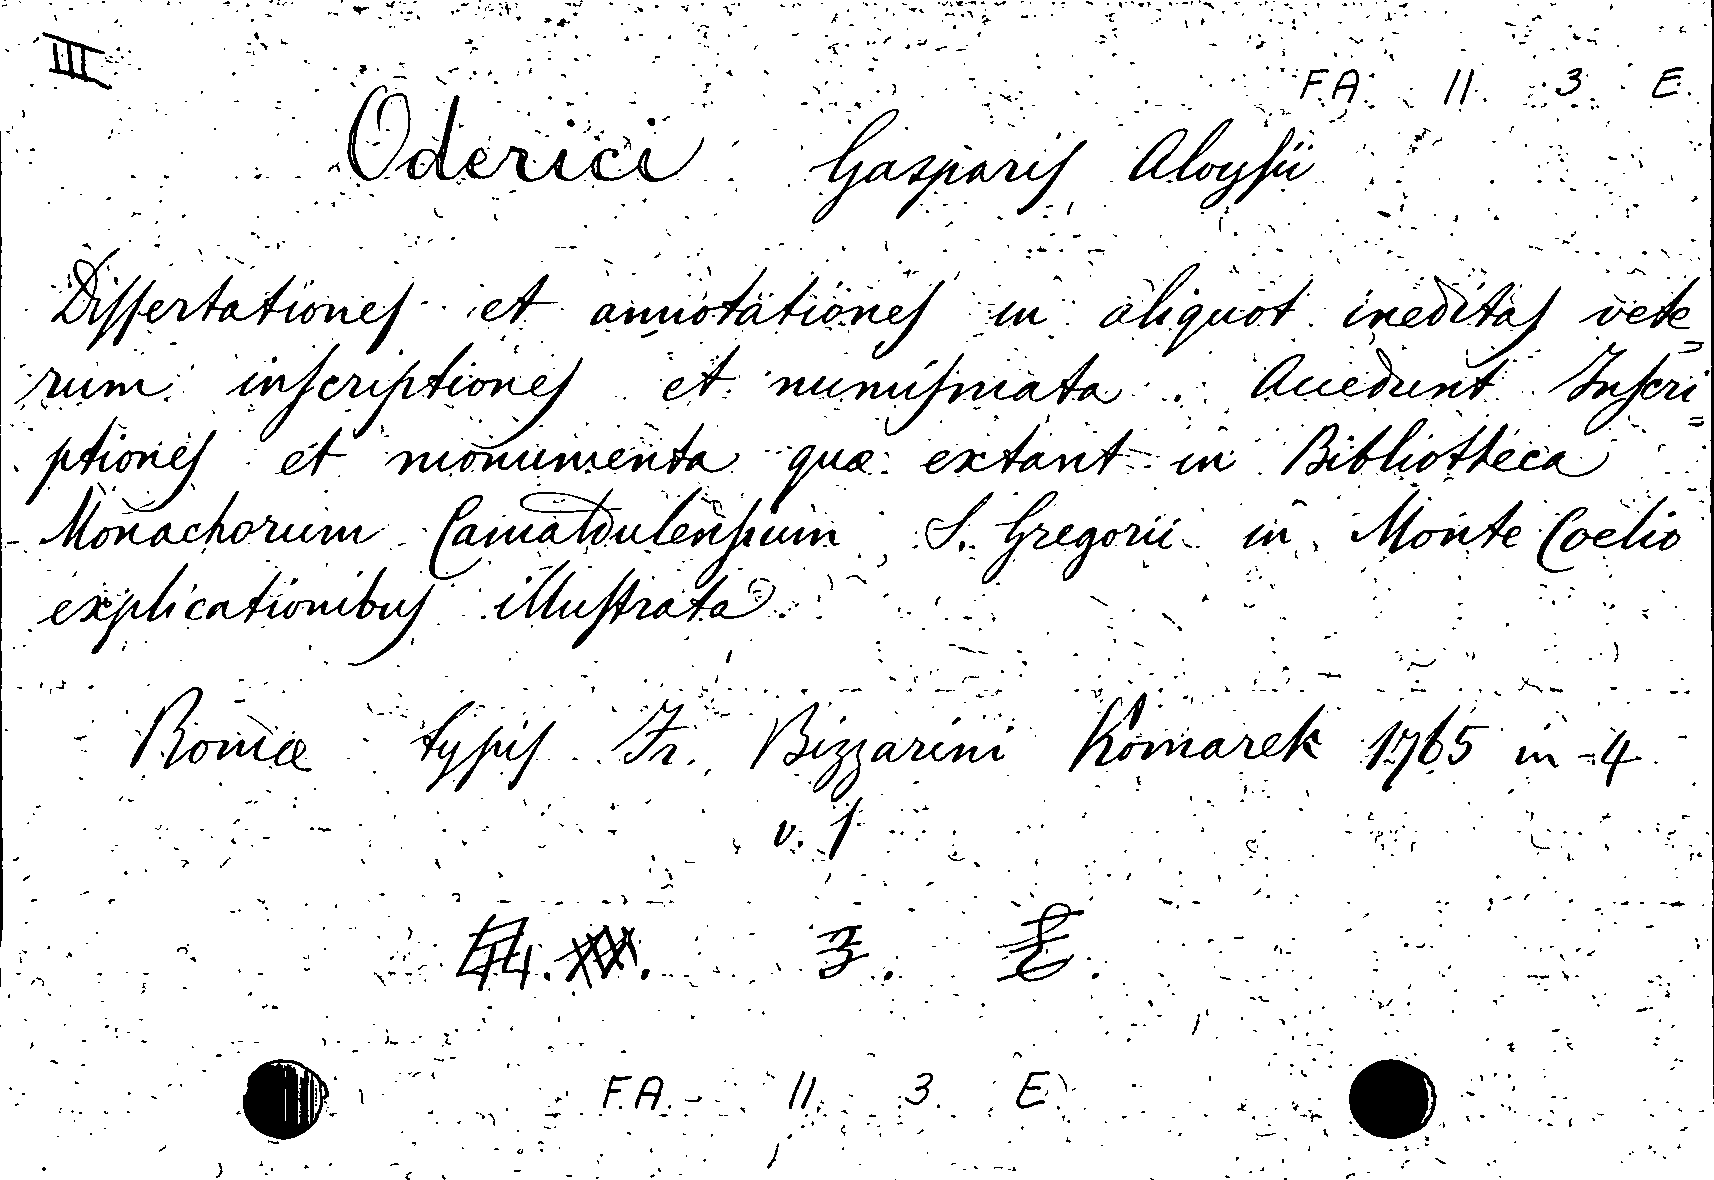 III
F.A. 11. 3. E.
Oderici Gasparis Aloysii
Dissertationes et annotationes in aliquot ineditas vete=
rum inscriptiones et numismata. Accedunt Inscri=
ptiones et monumenta quæ extant in Bibliotheca
Monachorum Camaldulensium S. Gregorii in Monte Coelio
explicationibus illustrata.
Romæ typis Fr. Bizzarini Komarek 1765 in-4
v. 1
3. E.
F.A. 11. 3. E.